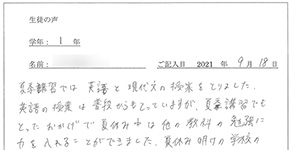 生徒の声
学年: 1 年
名前: ご記入日 2021 年 9 月 18 日
夏季講習では 英語 と 現代文の 授業を とりました。
英語の授業は 普段からもとっていますが、夏季講習でも
とった おかげで 夏休み中は 他の教科の 勉強に
力を入れることができました。夏休み明けの 学校の